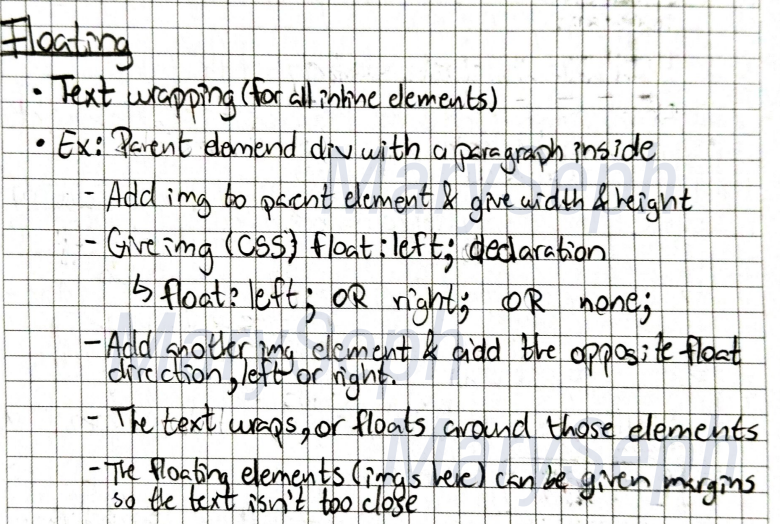 Floating
• Text wrapping (for all inline elements)
• Ex: Parent elemend div with a paragraph inside
- Add img to parent element & give width & height
- Give img (CSS) float: left; declaration
↳ float: left; OR right; OR none;
- Add another img element & add the opposite float
direction, left or right.
- The text wraps, or floats around those elements
- The floating elements (imgs here) can be given margins
so the text isn't too close
MarySeph
MarySeph
MarySeph